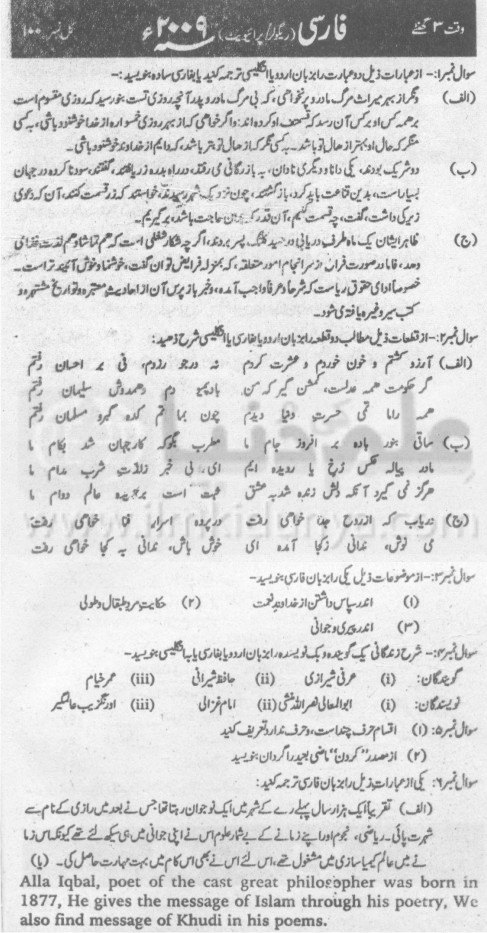 وقت ۳ گھنٹے
فارسی (ریگولر/پرائیویٹ) سنہ ۲۰۰۹ء
کل نمبر ۱۰۰
سوال نمبر۱:- از عبارات ذیل دو عبارت را بزبان اردو یا انگلیسی ترجمہ کنید یا بفارسی سادہ بنویسید:-
(الف) دیگر از بہر میراث مرگ مادر و پدر نخواہی، کہ بی مرگ مادر و پدر آنچہ روزی تست بتو رسید کہ روزی مقسوم است
بر ہمہ کس و بر کس آن رسد کہ قسمت او کردہ اند: و اگر خواہی کہ از بہر روزی از خدا خوشنود باشی، بہ کسی
منگر کہ حال او بہتر از حال تو باشد، بہ کسی نگر کہ حال تو بہتر باشد، کہ دایم از خداوند خوشنود باشی۔
(ب) دو شریک بودند، یکی دانا و دیگری نادان، بہ بازرگانی می رفتند، در راہ بدرہ زر یافتند، گفتند، سود ناکردہ در جہان
بسیار است، بدین قناعت باید کرد، باز گشتند، چون نزدیک شہر رسیدند، خواستند کہ زر قسمت کنند، آن کہ دعوی
زیرکی داشت، گفت، چہ قسمت کنیم، آن قدر کہ حاجت باشد، برگیریم۔
(ج) ظاہراً ایشان یک ماہ طرف دریائی در صید کلنگ بسر بردند، اگرچہ شکار شغلی است کہ ہم تماشا و ہم لذت غذا می
دہد، فاما در صورت فراغ از سرانجام امور متعلقہ، کہ بمنزلہ فرایض توان گفت، خوشنما و خوش آیندہ تر است۔
خصوصاً ادای حقوق ریاست کہ شرعاً و عرفاً واجب آمدہ، و خبر باز پرس آن از احادیث معتبرہ و تواریخ مشتہرہ و
کتب سیر وغیرہ یافتہ می شود۔
سوال نمبر۲:- از قطعات ذیل مطالب دو قطعہ را بزبان اردو یا بفارسی یا انگلیسی شرح دہید:-
(الف) آرزو کشتم و خون خوردم و عشرت کردم نہ در جو رزدم، نی بر احسان رفتم
گر حکومت ہمہ عدلست،
ہمہ دنیا دیدم چون بماتم کدہ گبرو مسلمان رفتم
(ب) ساقی بنور بادہ بر افروز جام ما مطرب بگو کہ کار جہان شد بکام ما
ما در پیالہ عکس رخ یار دیدہ ایم ای بی خبر ز لذت شرب مدام ما
ہرگز نمی میرد آنکہ دلش زندہ شد بہ عشق ثبت است بر جریدہ عالم دوام ما
(ج) دریاب کہ از روح جدا خواہی رفت در پردہ اسرار فنا خواہی رفت
می نوش، ندانی ز کجا آمدہ ای خوش باش، ندانی بہ کجا خواہی رفت
سوال نمبر۳:- از موضوعات ذیل یکی را بزبان فارسی بنویسید۔
(۱) اندر سپاس داشتن از خداوند نعمت (۲) حکایت مرد بقال و طوطی
(۳) اندر پیری و جوانی
سوال نمبر۴:- شرح زندگانی یک گویندہ و یک نویسندہ را بزبان اردو یا بفارسی یا بہ انگلیسی بنویسید۔
گویندگان: (i) عرفی شیرازی (ii) حافظ شیرازی (iii) عمر خیام
نویسندگان: (i) ابوالمعالی نصر اللہ منشی (ii) امام غزالی (iii) اورنگزیب عالمگیر
سوال نمبر۵:- (۱) اقسام حرف چند است، و حرف ندا را تعریف کنید
(۲) از مصدر "کردن" ماضی بعید را گردان بنویسید
سوال نمبر۶:- یکی از عبارات ذیل را بزبان فارسی ترجمہ کنید:
(الف) تقریباً ایک ہزار سال پہلے رے کے شہر میں ایک نوجوان رہتا تھا جس نے بعد میں رازی کے نام سے
شہرت پائی۔ ریاضی، نجوم اور اپنے زمانے کے بے شمار علوم اس نے اپنی جوانی میں ہی سیکھ لئے تھے کیونکہ اس زما
نے میں عالم کیمیا سازی میں مشغول تھے، اس لئے اس نے بھی اس کام میں بہت مہارت حاصل کی۔ (یا)
Alla Iqbal, poet of the cast great philosopher was born in
1877, He gives the message of Islam through his poetry, We
also find message of Khudi in his poems.
علم کی دنیا
www.ilmkidunya.com